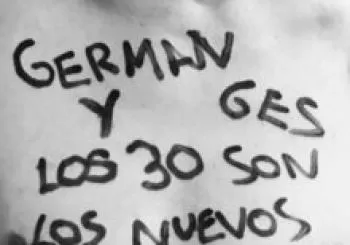 GERMAN
Y GES
LOS 30 SON
LOS NUEVOS